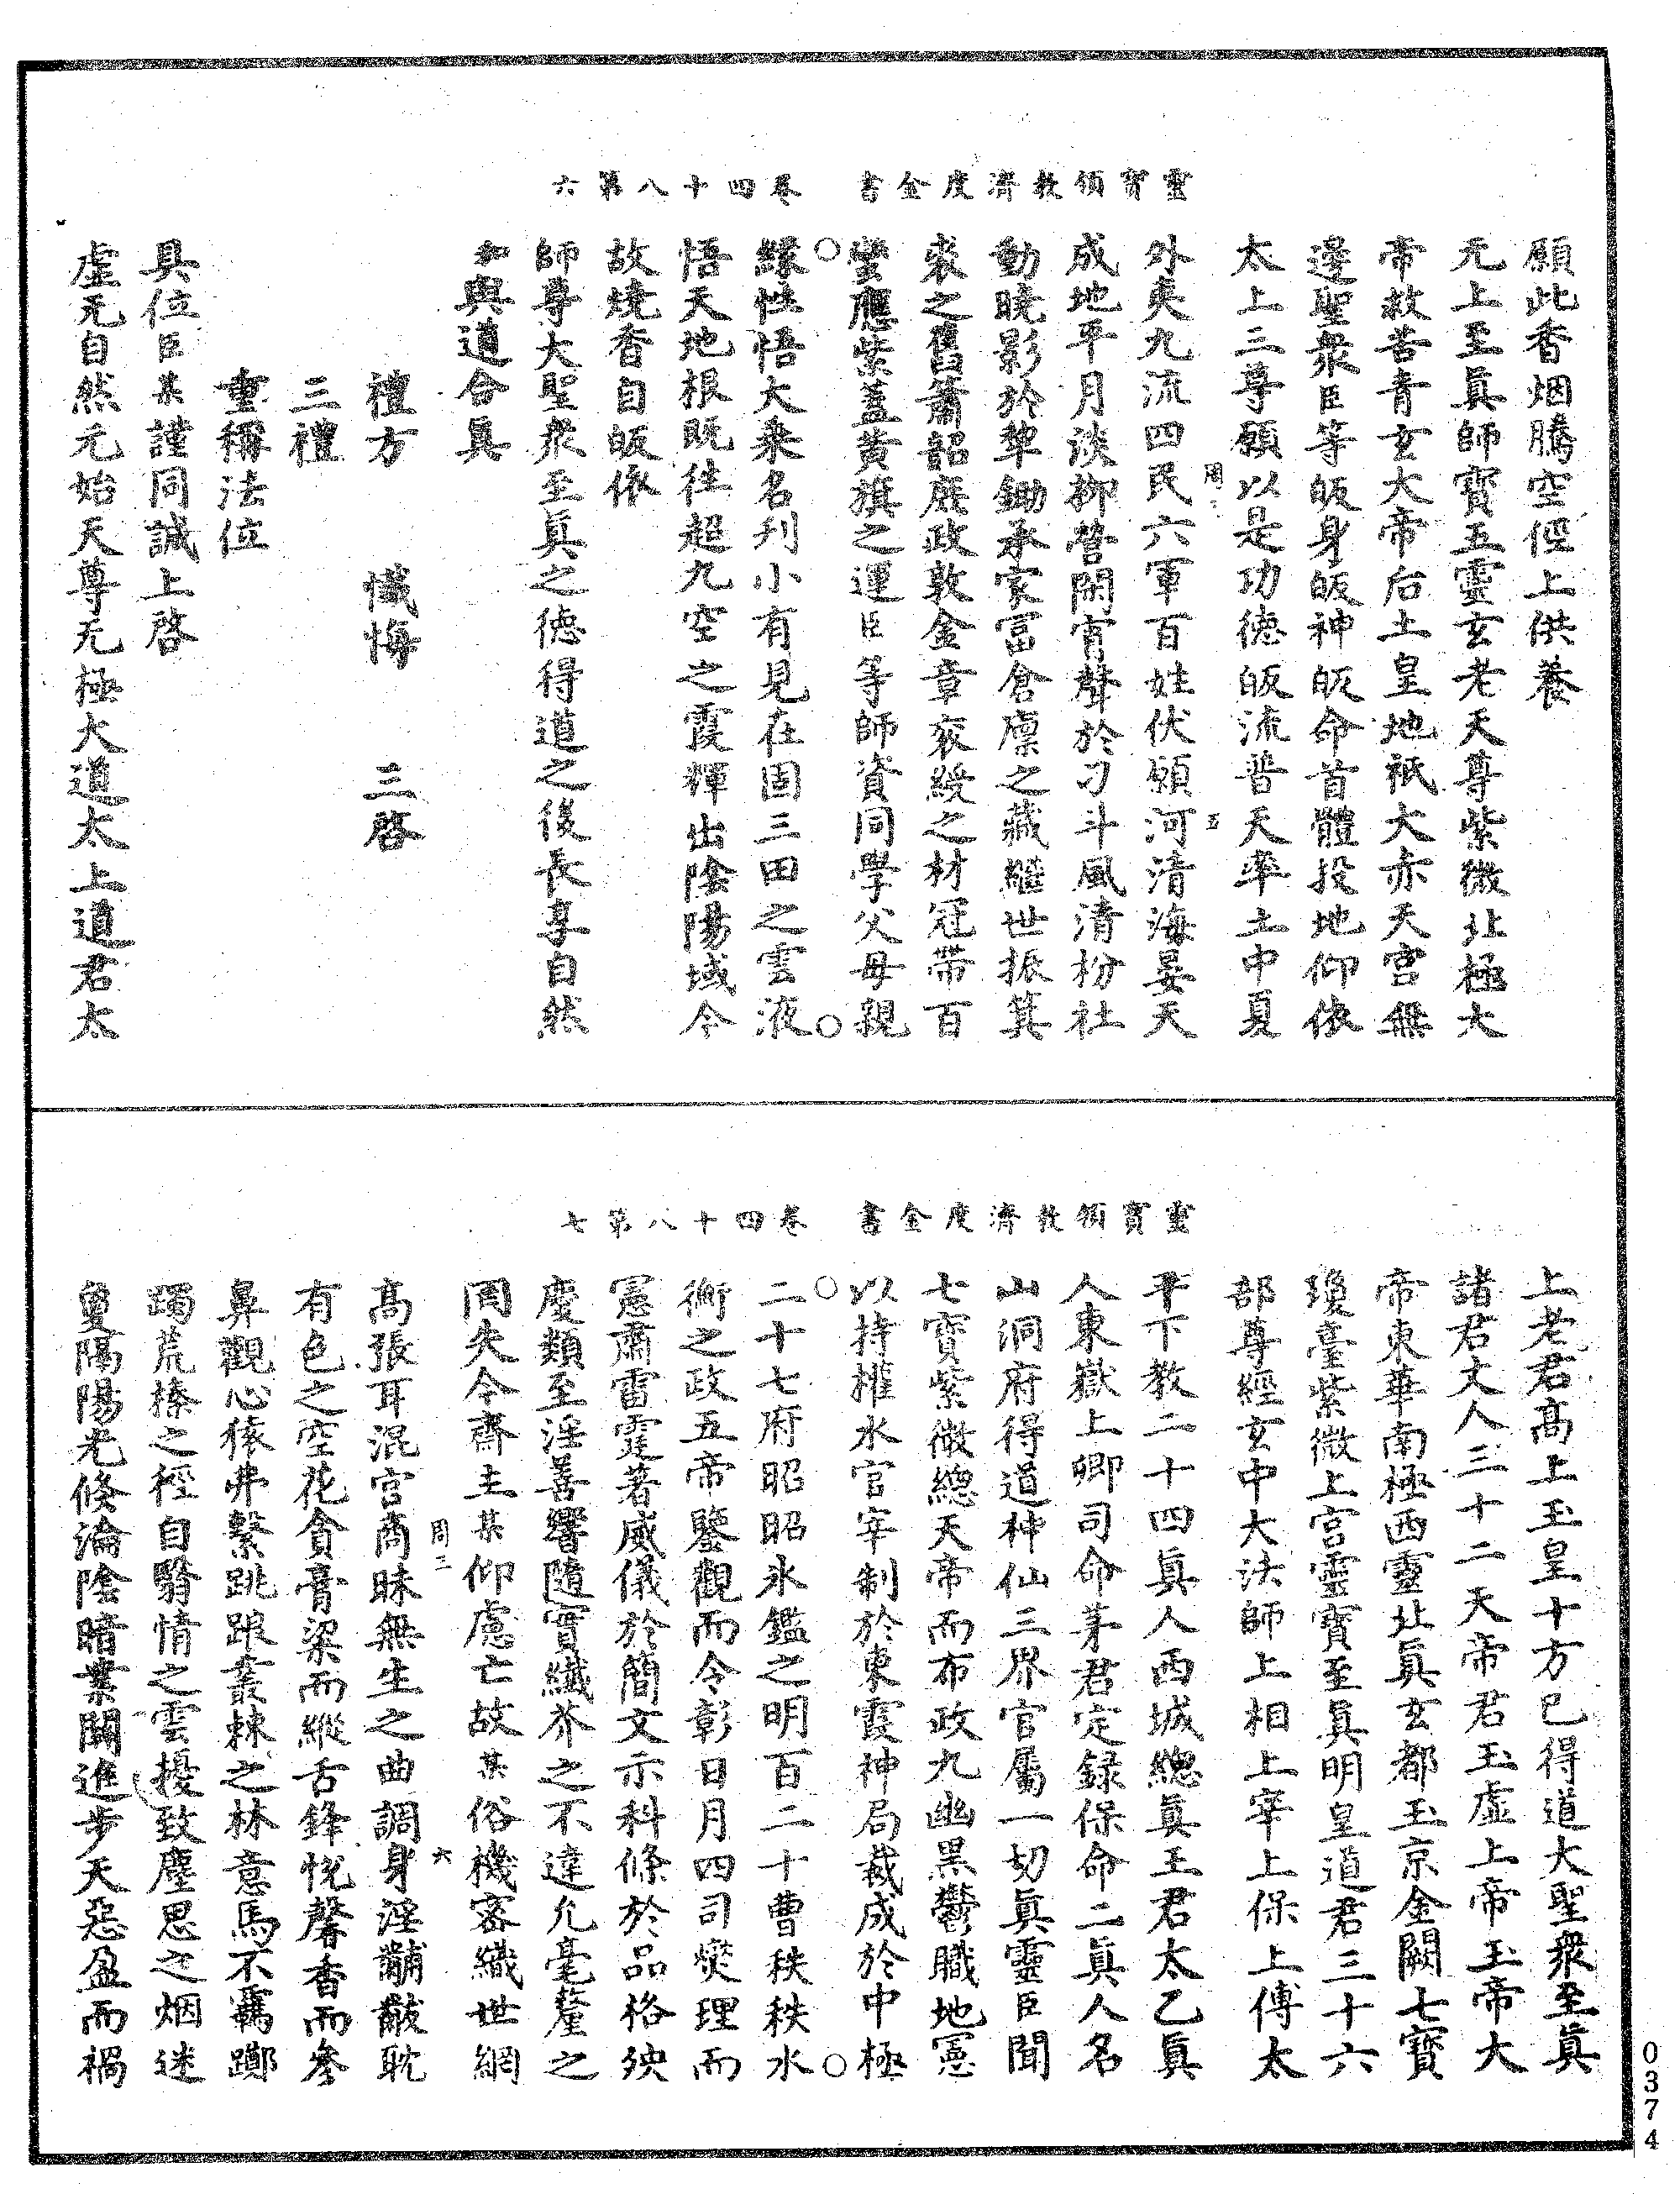 靈寶領教濟度金書　卷四十八第六
願此香烟騰空徑上供養
无上至眞師寶五靈玄老天尊紫微北極大
帝救苦青玄大帝后土皇地祇大赤天宫無
邊聖衆臣等皈身皈神皈命首體投地仰依
太上三尊願以是功德皈流普天率土中夏
外夷九流四民六軍百姓伏願河清海晏天
成地平月淡栁營閑宵聲於刁斗風清枌社
動曉影於犂鋤承家冨倉廪之藏繼世振箕
裘之舊簫韶庶政敦金章衮綬之材冠帶百
蠻應紫蓋黄旗之運臣等師資同學父母親
緣性悟大乗名列小有見在固三田之雲液
悟天地根既往超九空之霞輝出陰陽域今
故燒香自皈依
師尊大聖衆至眞之德得道之後長享自然
與道合眞
禮方　懺悔　三啓
三禮
重稱法位
具位臣某謹同誠上啓
虛无自然元始天尊无極大道太上道君太
周
五
靈寶領教濟度金書　卷四十八第七
上老君髙上玉皇十方已得道大聖衆至眞
諸君丈人三十二天帝君玉虚上帝玉帝大
帝東華南極西靈北眞玄都玉京金闕七寶
瓊臺紫微上宫靈寶至眞明皇道君三十六
部尊經玄中大法師上相上宰上保上傅太
平下教二十四眞人西城總眞王君太乙眞
人東嶽上卿司命茅君定録保命二眞人名
山洞府得道神仙三界官屬一切眞靈臣聞
七寶紫微總天帝而布政九幽黑欝職地憲
以持權水官宰制於東霞神局裁成於中極
二十七府昭昭氷鑑之明百二十曹秩秩水
衡之政五帝鑒觀而令彰日月四司爕理而
憲肅雷霆著威儀於簡文示科條於品格殃
慶類至淫善響隨實纖芥之不違允毫釐之
罔失今齋主某仰慮亡故某俗機客織世網
髙張耳混宫商昧無生之曲調身淫黼黻耽
有色之空花貪膏粱而縱舌鋒恱馨香而參
鼻觀心猿弗繫跳踉叢棘之林意馬不羈躑
躅荒榛之徑自翳情之雲擾致塵思之烟迷
敻隔陽光倐淪陰暗業關進步天惡盈而禍
周三
六
0374